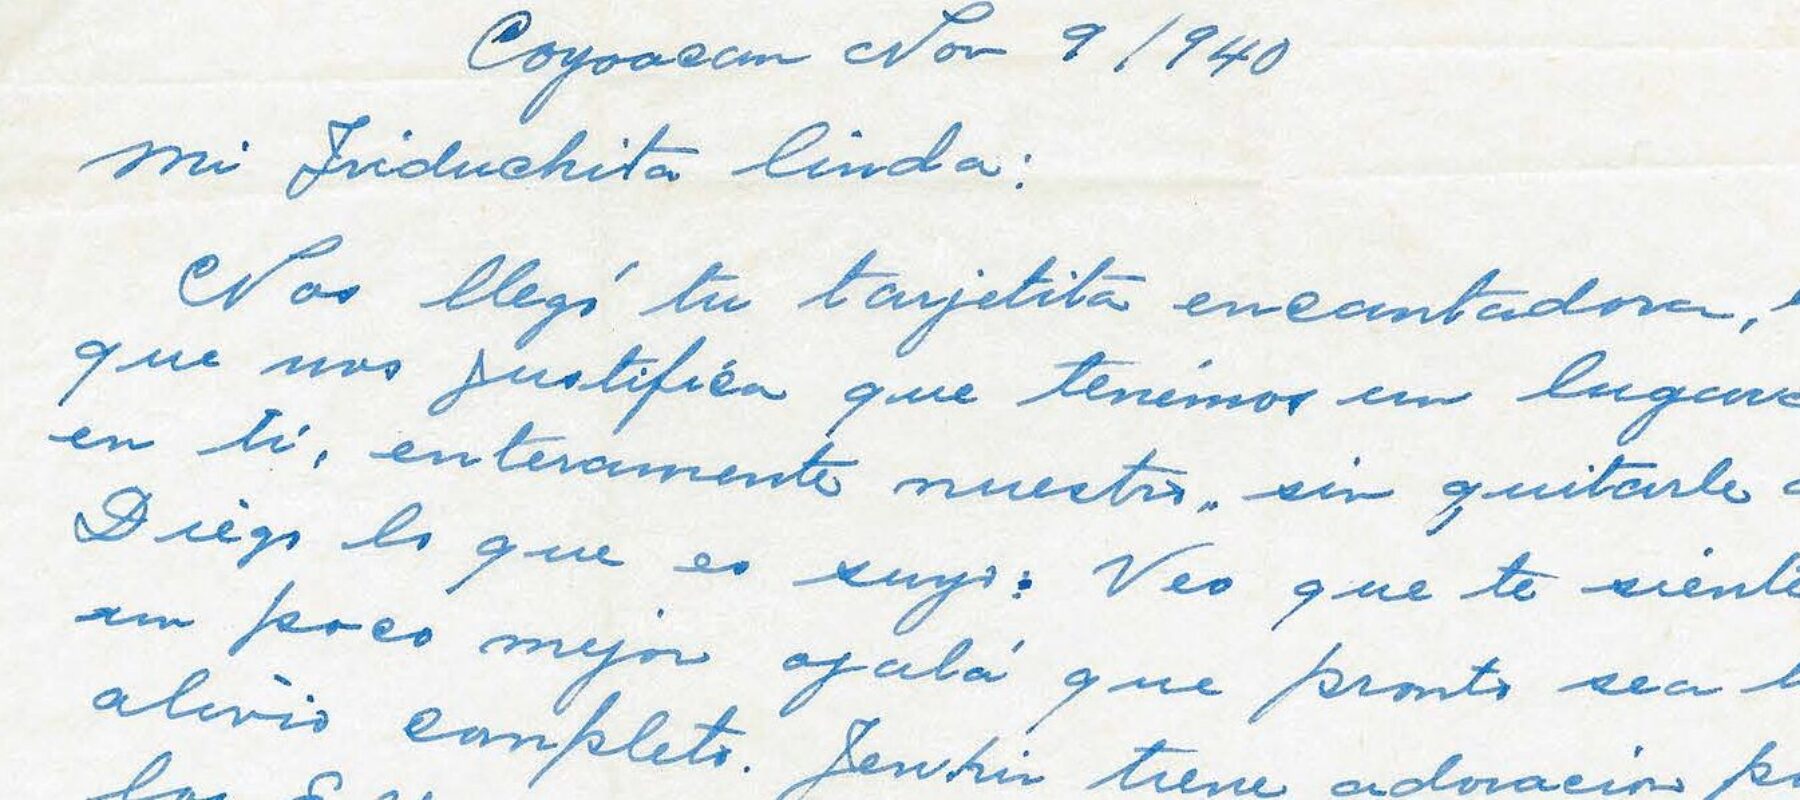 Coyoacan Nov 9/940
Mi Friduchita linda:
Nos llegó tu tarjetita encantadora,
que nos justifica que tenémos un
en ti, enteramente nuestro,, sin quitarle
Diégo lo que es suyo: Veo que te
un poco mejor ojalá que pronto sea
alivio completo. tiene adoración